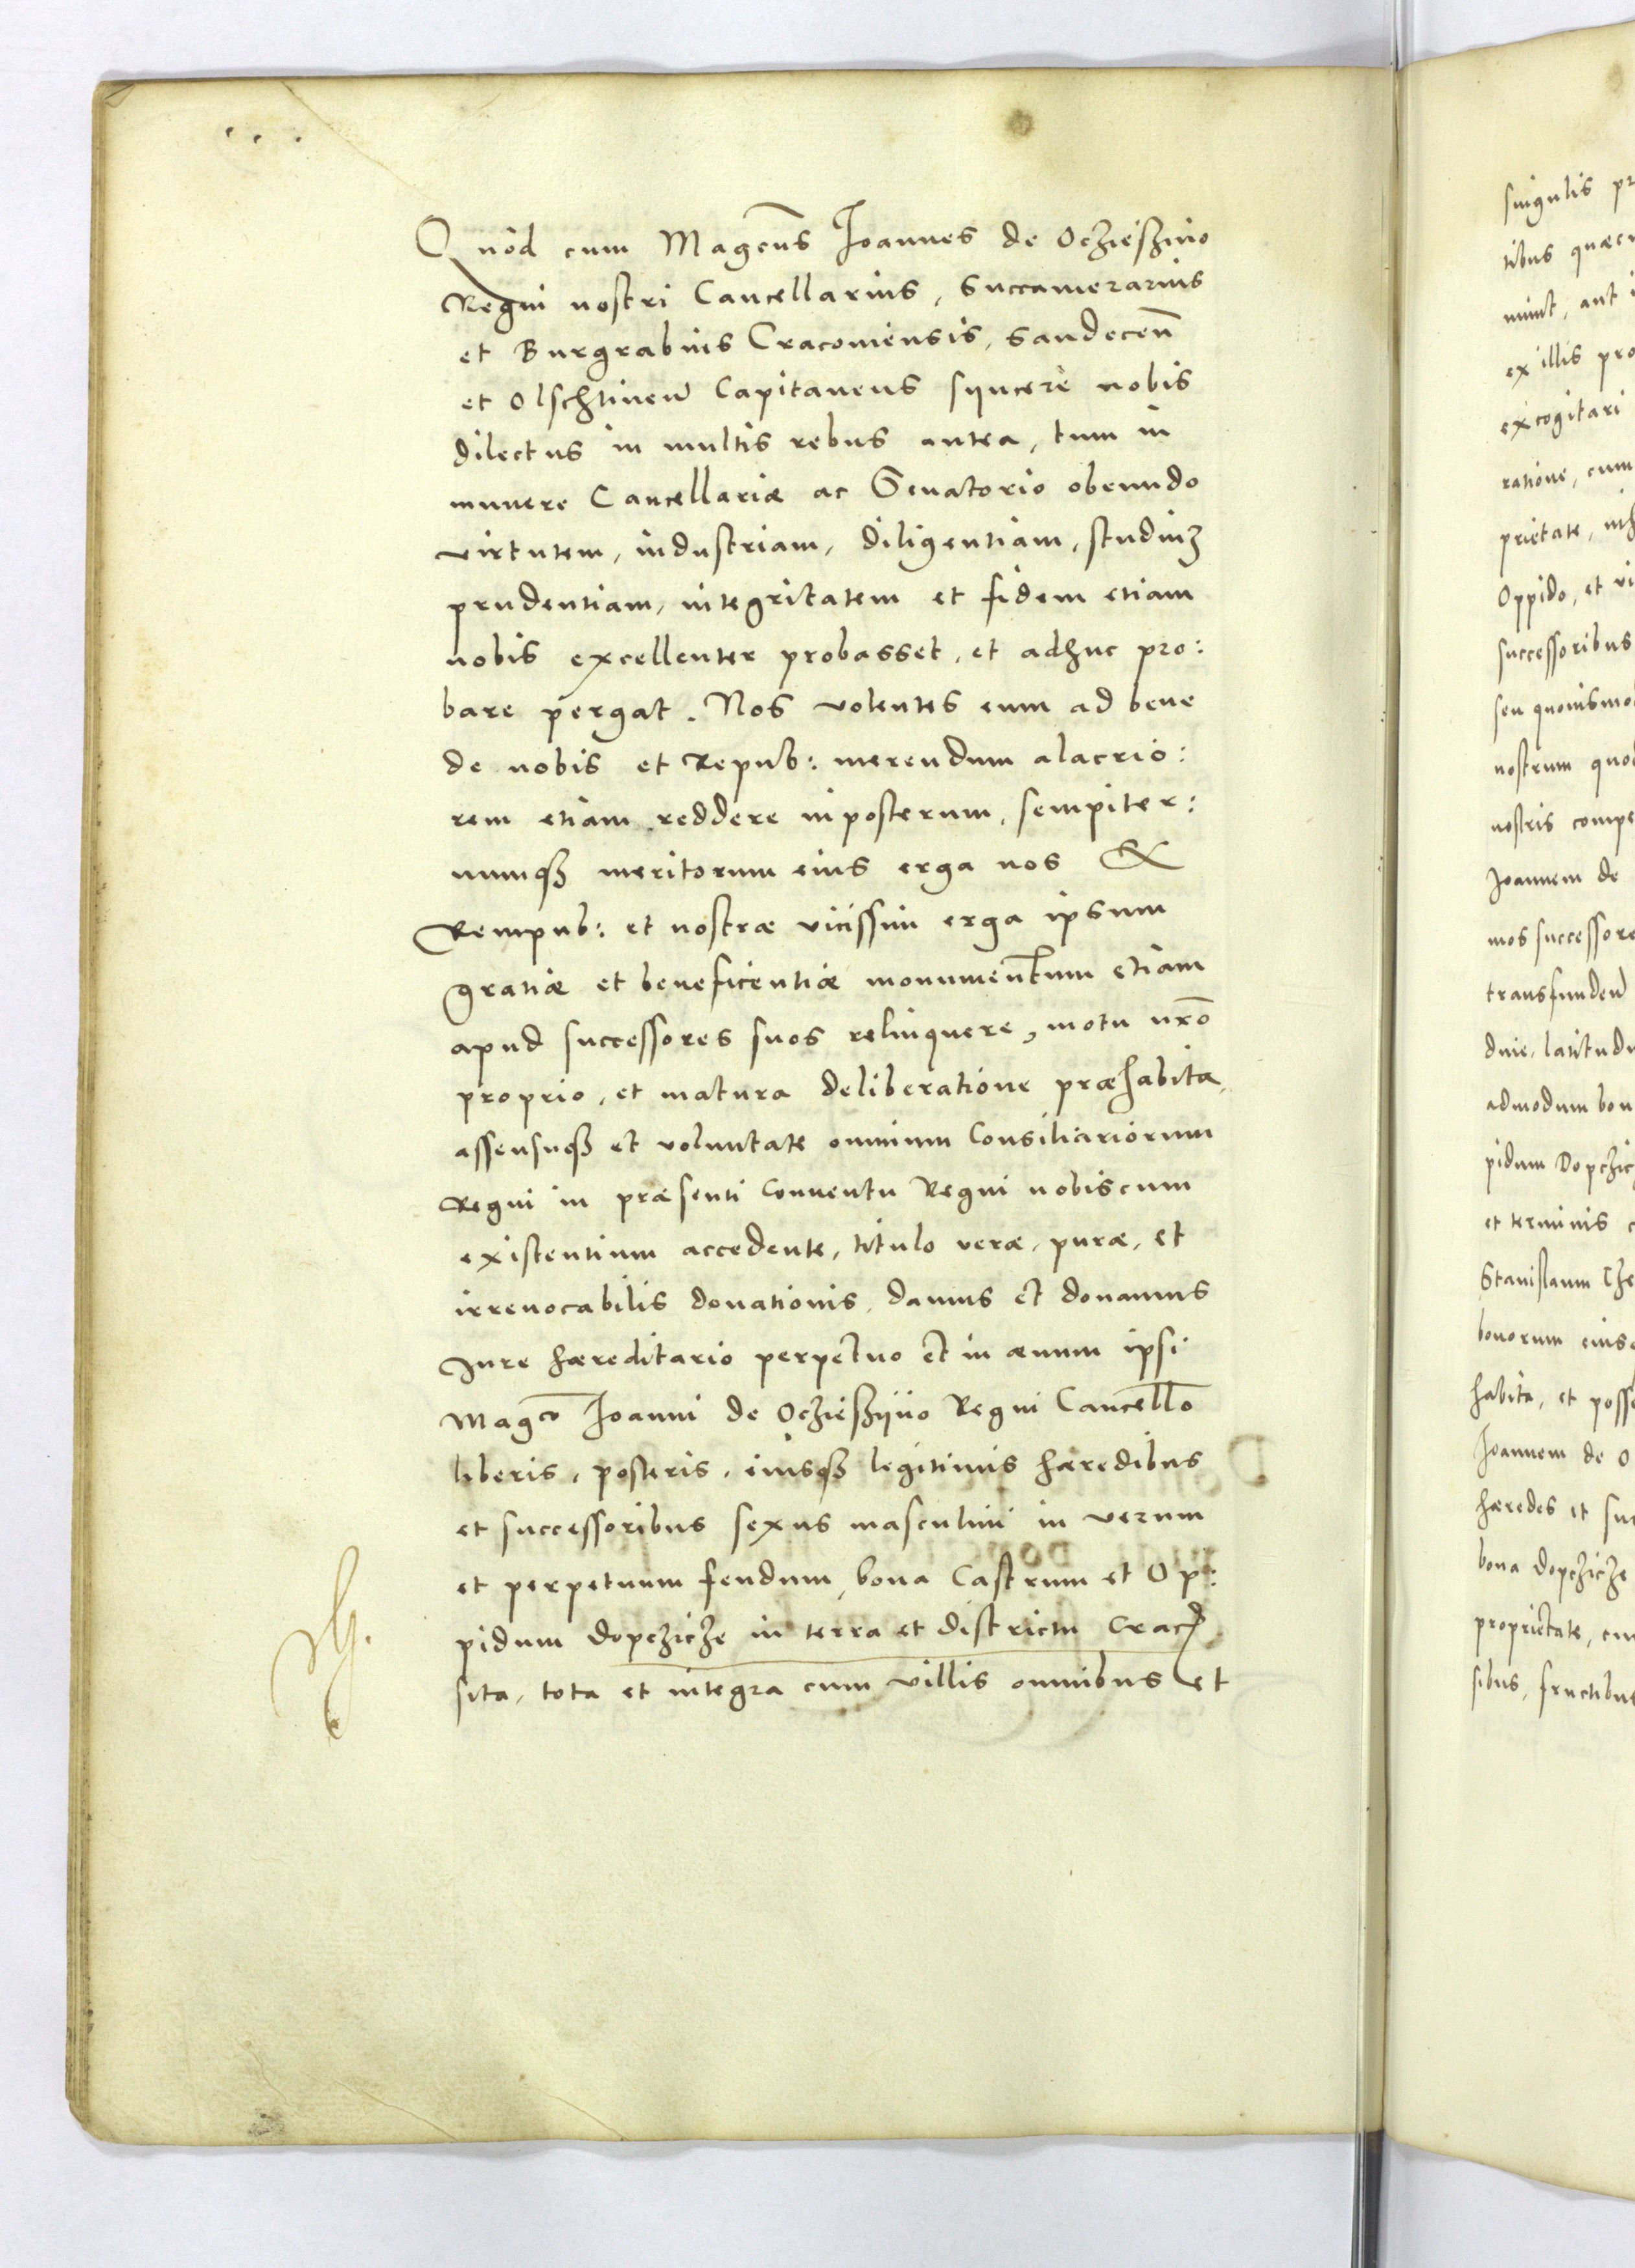 Quòd cum Magcus Joannes de Oczieszino
Regni nostri Cancellarius, Succamerarius
et Burgrabius Cracoviensis, Sandecen
et Olschtinen Capitaneus syncerè nobis
dilectus in multis rebus antea, tum in
munere Cancellariæ ac Senatorio obeundo
virtutem, industriam, diligentiam, studiuʒ
prudentiam, integritatem et fidem etiam
nobis excellenter probasset, et adhuc pro:
bare pergat. Nos volentes eum ad bene
de nobis et Repub: merendum alacrio:
rem etiam reddere inposterum, sempiter:
numqʒ meritorum eius erga nos &
Rempub: et nostræ vicissim erga ipsum
gratiæ et beneficentiæ monumentum etiam
apud successores suos relinquere, motu nro
proprio, et matura deliberatione præhabita,
assensuqʒ et voluntate omnium Consiliariorum
Regni in præsenti Conuentu Regni nobiscum
existentium accedente, titulo veræ, puræ, et
irreuocabilis donationis, damus et donamus
Jure hæreditario perpetuo et in æuum ipsi
Magco Joanni de Oczieszyno Regni Cancello
liberis, posteris, eiusqʒ legitimis hæredibus
et successoribus sexus masculini in verum
et perpetuum feudum, bona Castrum et Op:
pidum Dopczicze in terra et districtu Crac
sita, tota et integra cum villis omnibus et
singulis
tibus
ant
ex illis
excogitari
ratione, cum
prietate,
Oppido, et
successoribus
seu
nostrum
nostris
Joannem de
mos
transfunden
admodum
pidum
et terminis
Stanislaum
bonorum
habita, et
Joannem de O
hæredes et
bona Dopczicze
proprietate,
sibus, fructibus